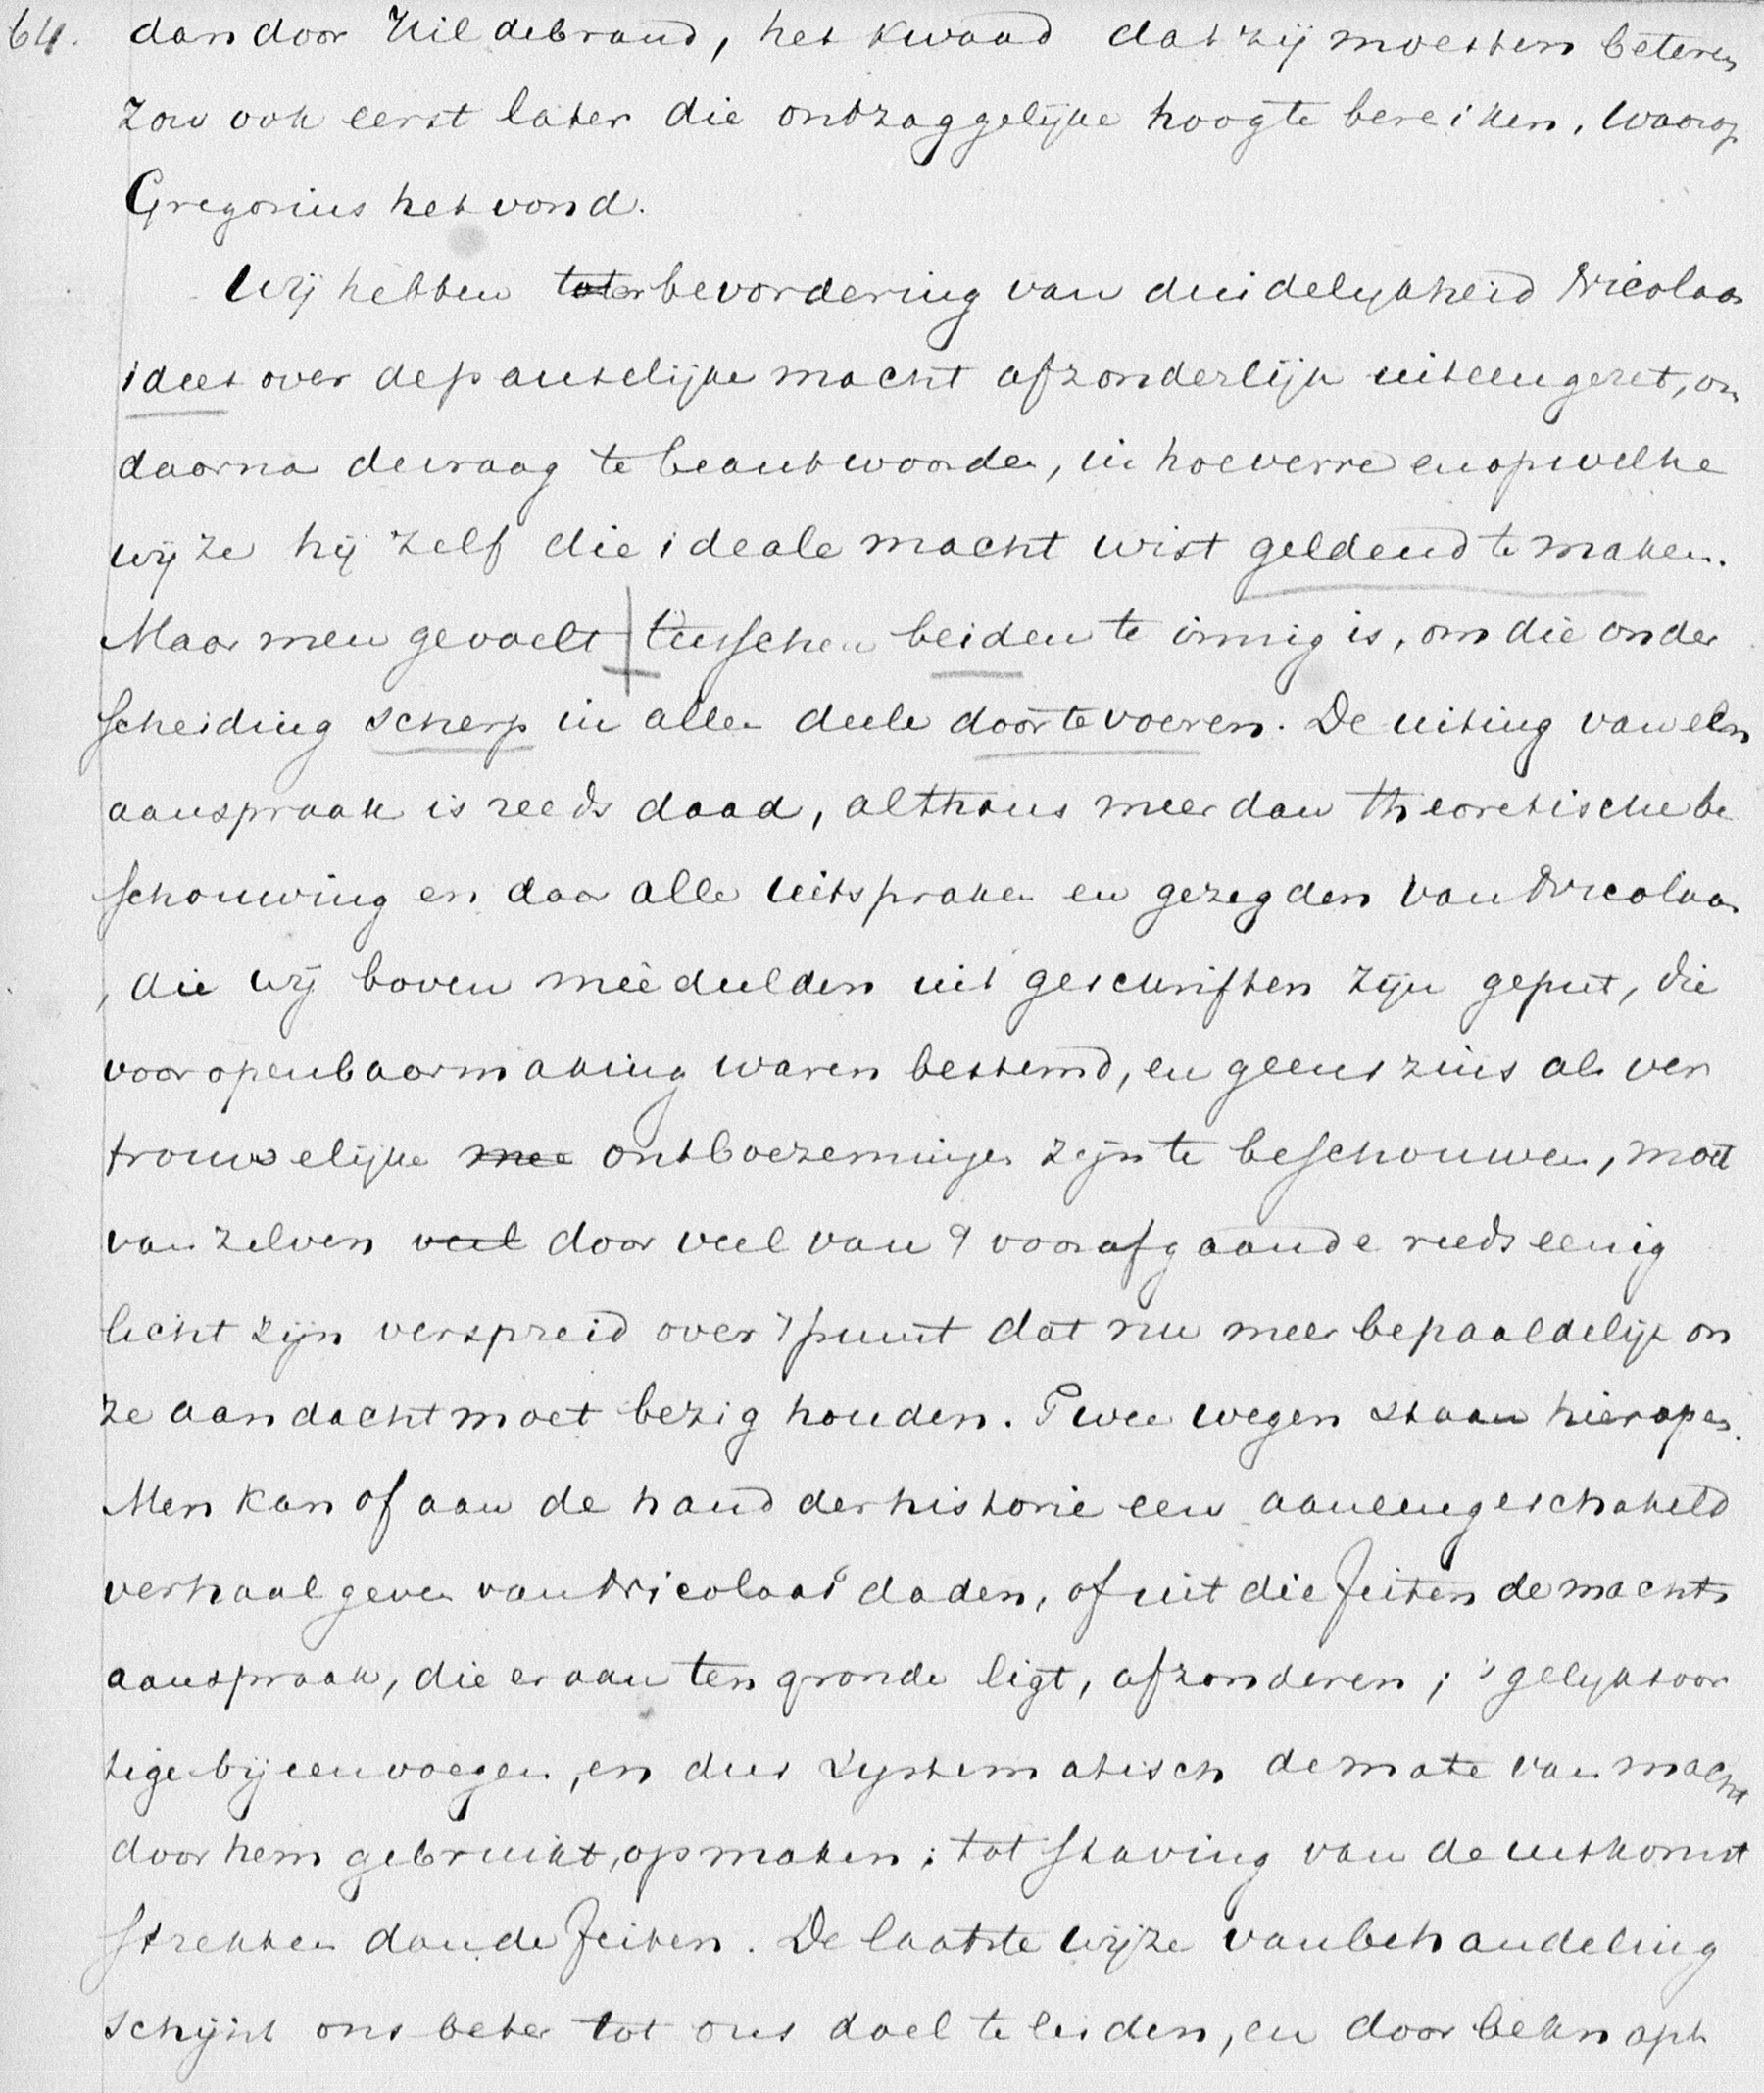 64. dan door Hildebrand, het kwaad dat zij moesten beteren
zou ook eerst later die ontzaggelijke hoogte bereiken, waarop
Gregorius het vond.
Wij hebben ter bevordering van duidelykheid Nicolaas
idees over de pauselijke macht afzonderlijk uiteengezet, om
daarna de vraag te beantwoorden, in hoeverre en op welke
wijze hij zelf die ideale macht wist geldend te maken.
Maar men gevoelt tusschen beiden te innig is, om die onder
scheiding scherp in allen deele door te voeren. De uiting van een
aanspraak is reeds daad, althans meer dan theoretische be
schouwing en daar alle uitspraken en gezegden van Nicolaas
, die wij boven meêdeelden uit geschriften zijn geput, die
voor openbaarmaking waren bestemd, en geenszins als ver
trouwelijke mee ontboezemingen zijn te beschouwen, moet
van zelven veel door veel van 't voorafgaande reeds eenig
licht zijn verspreid over 't punt dat nu meer bepaaldelijk on
ze aandacht moet bezig houden. Twee wegen staan hier open.
Men kan of aan de hand der historie een aaneengeschakeld
verhaal geven van Nicolaas' daden, of uit die feiten de machts
aanspraak, die er aan ten gronde ligt, afzonderen; 't gelyksoor
tige bijeenvoegen, en dus systematisch de mate van macht
door hem gebruikt, opmaken; tot staving van de uitkomst
strekken dan de feiten. De laatste wijze van behandeling
schijnt ons beter tot ons doel te leiden, en door beknopt